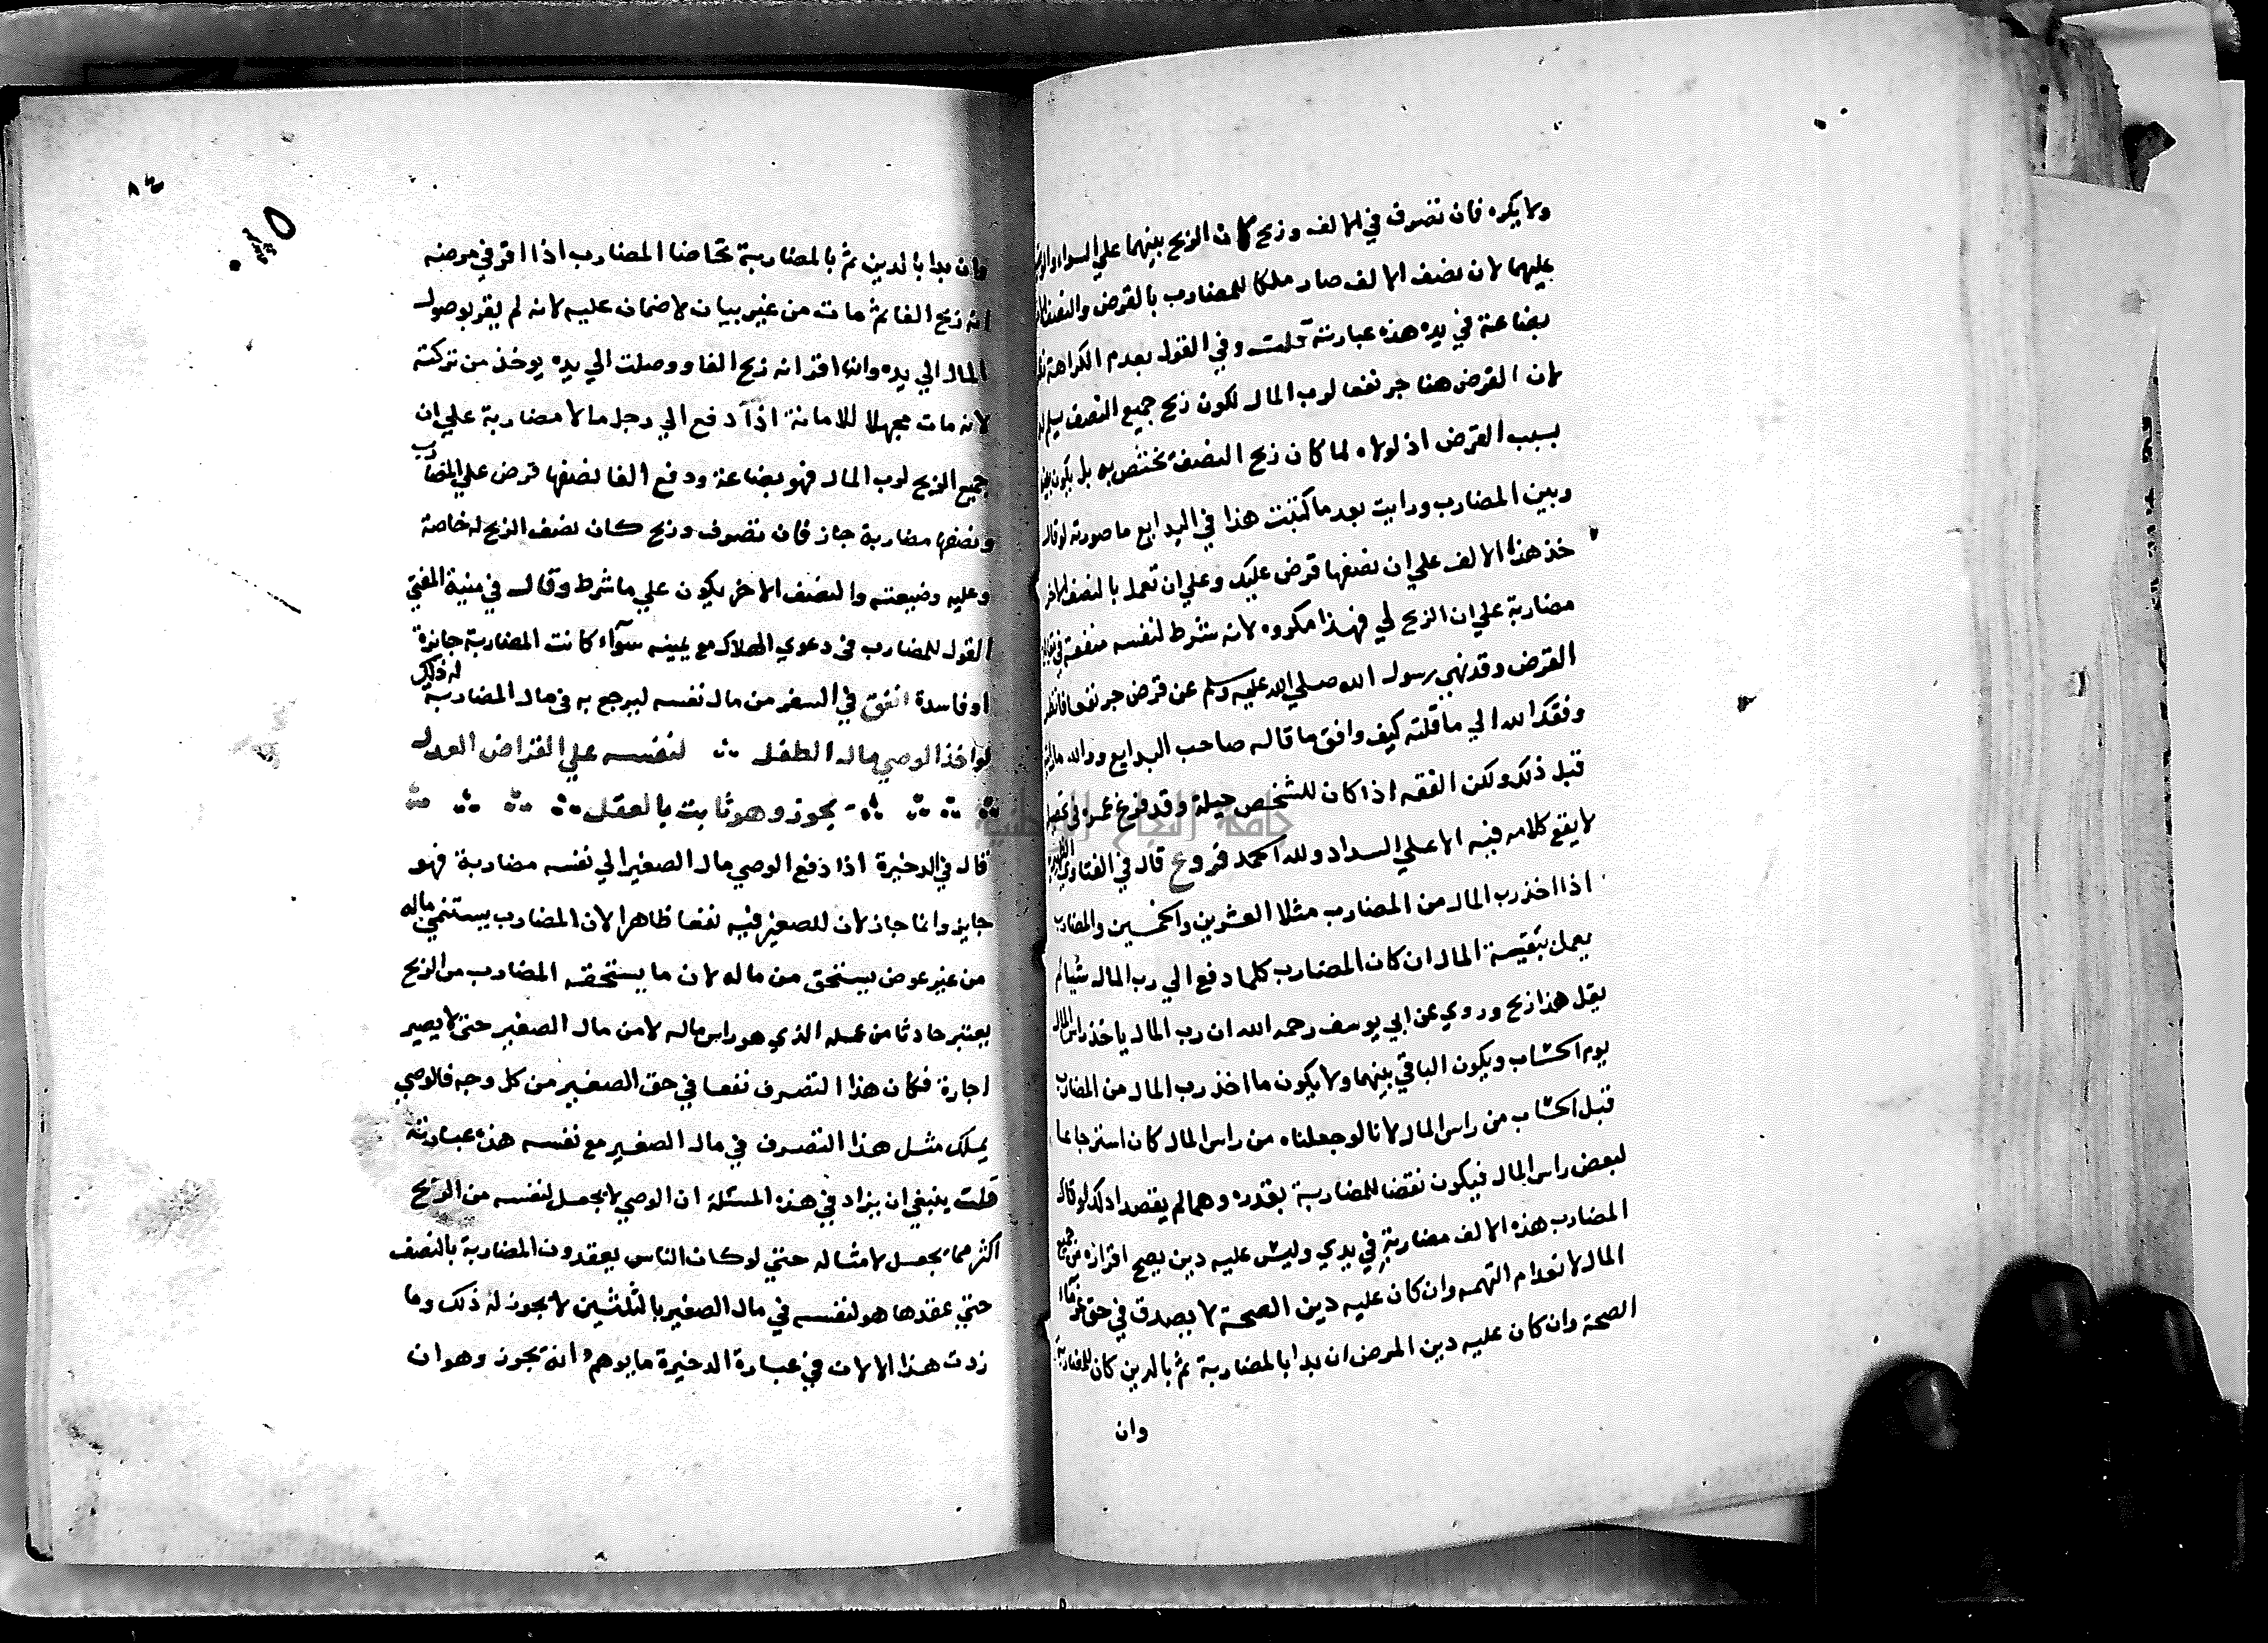 ولا يكره فان تصرف في الالف وربح كان الربح بينهما علي السواء
عليهما لان نصف الالف صار ملكا للمضارب بالقرض والنصف
بضاعة في يده هذه عبارته قلت وفي القول بعدم الكراهة
لان القرض هنا جر نفعا لرب المال لكون ربح جميع النصف يسلم
بسبب القرض اذ لولاه لما كان ربح النصف يختص به بل يكون
وبين المضارب ورايت بعد ما كتبت هذا في البدايع ما صورته لو قال
خذ هذه الالف علي ان نصفها قرض عليك وعلي ان تعمل بالنصف الاخر
مضاربة علي ان الربح لي فهذا مكروه لانه شرط لنفسه منفعة في
القرض وقد نهي رسول الله صلي الله عليه وسلم عن قرض جر نفعا
وفقك الله الي ما قلته كيف وافق ما قاله صاحب البدايع ووالله
قبل ذلك ولكن الفقه اذا كان للشخص جبلة وقد فرغ عمره في
لا يقع كلامه فيه الا علي السداد ولله الحمد فروع قال في الفتاوي
اذا اخذ رب المال من المضارب مثلا العشرين والخمسين والمضارب
يعمل ببقية المال ان كان المضارب كلما دفع الي رب المال شيا لم
يقل هذا ربح وروي عن ابي يوسف رحمه الله ان رب المال ياخذ راس المال
يوم الحساب ويكون الباقي بينهما ولا يكون ما اخذ رب المال من المضارب
قبل الحساب من راس المال لانا لو جعلناه من راس المال كان استرجاعا
لبعض راس المال فيكون نقضا للمضاربة بقدره وهما لم يقصدا ذلك لو قال
المضارب هذه الالف مضاربة في يدي وليس عليه دين يصح اقراره من جميع
المال لانعدام التهمه وان كان عليه دين الصحة لا يصدق في حق غرماء
الصحة وان كان عليه دين المرض ان بدا بالمضاربة ثم بالدين كان للمضاربة
وان
وان بدا بالدين ثم بالمضاربة تحاصا المضارب اذا اقر في مرضه
انه ربح الفا ثم مات من غير بيان لا ضمان عليه لانه لم يقر بوصول
المال الي يده وان اقر انه ربح الفا ووصلت الي يده يوخذ من تركته
لانه مات مجهلا للامانة اذا دفع الي رجل مالا مضاربة علي ان
جميع الربح لرب المال فهو بضاعة ودفع الفا نصفها قرض علي المضارب
ونصفها مضاربة جاز فان تصرف وربح كان نصف الربح له خاصة
وعليه وضيعته والنصف الاخر يكون علي ما شرط وقال في منية المفتي
القول للمضارب في دعوي الهلاك مع يمينه سواء كانت المضاربة جائزة
او فاسدة انفق في السفر من مال نفسه ليرجع به في مال المضاربة له ذلك
لو اخذ الوصي مال الطفل لنفسه علي القراض العدل
يجوز وهو ثابت بالعقل
قال في الدخيرة اذا دفع الوصي مال الصغير الي نفسه مضاربة فهو
جايز وانما جاز لان للصغير فيه نفعا ظاهرا لان المضارب يستنمي ماله
من غير عوض يستحق من ماله لان ما يستحقه المضارب من الربح
يعتبر حادثا من عمله الذي هو راس ماله لا من مال الصغير حتي لا يصير
اجارة فكان هذا التصرف نفعا في حق الصغير من كل وجه فالوصي
يملك مثل هذا التصرف في مال الصغير مع نفسه هذه عبارته
قلت ينبغي ان يزاد في هذه المسئلة ان الوصي لا يجعل لنفسه من الربح
اكثر مما يجعل لامثاله حتي لو كان الناس يعقدون المضاربة بالنصف
حتي عقدها هو لنفسه في مال الصغير بالثلثين لا يجوز له ذلك وما
زدت هذا الا لان في عبارة الدخيرة ما يوهم انه يجوز وهو ان